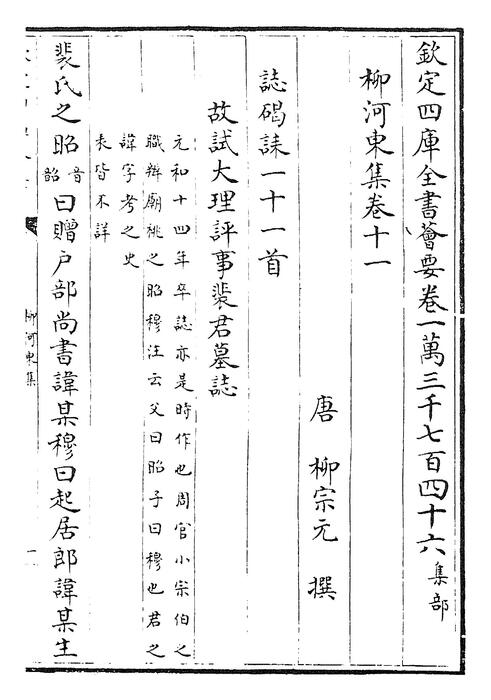 欽定四庫全書薈要卷一萬三千七百四十六集部
柳河東集卷十一
唐 柳宗元 撰
誌碣誄一十一首
故試大理評事裴君墓誌
元和十四年卒誌亦是時作也周官小宗伯之
職辨廟祧之昭穆注云父曰昭子曰穆也君之
諱字考之史
表皆不詳
裴氏之昭音韶曰贈户部尚書諱某穆曰起居郎諱某生
柳河東集
一